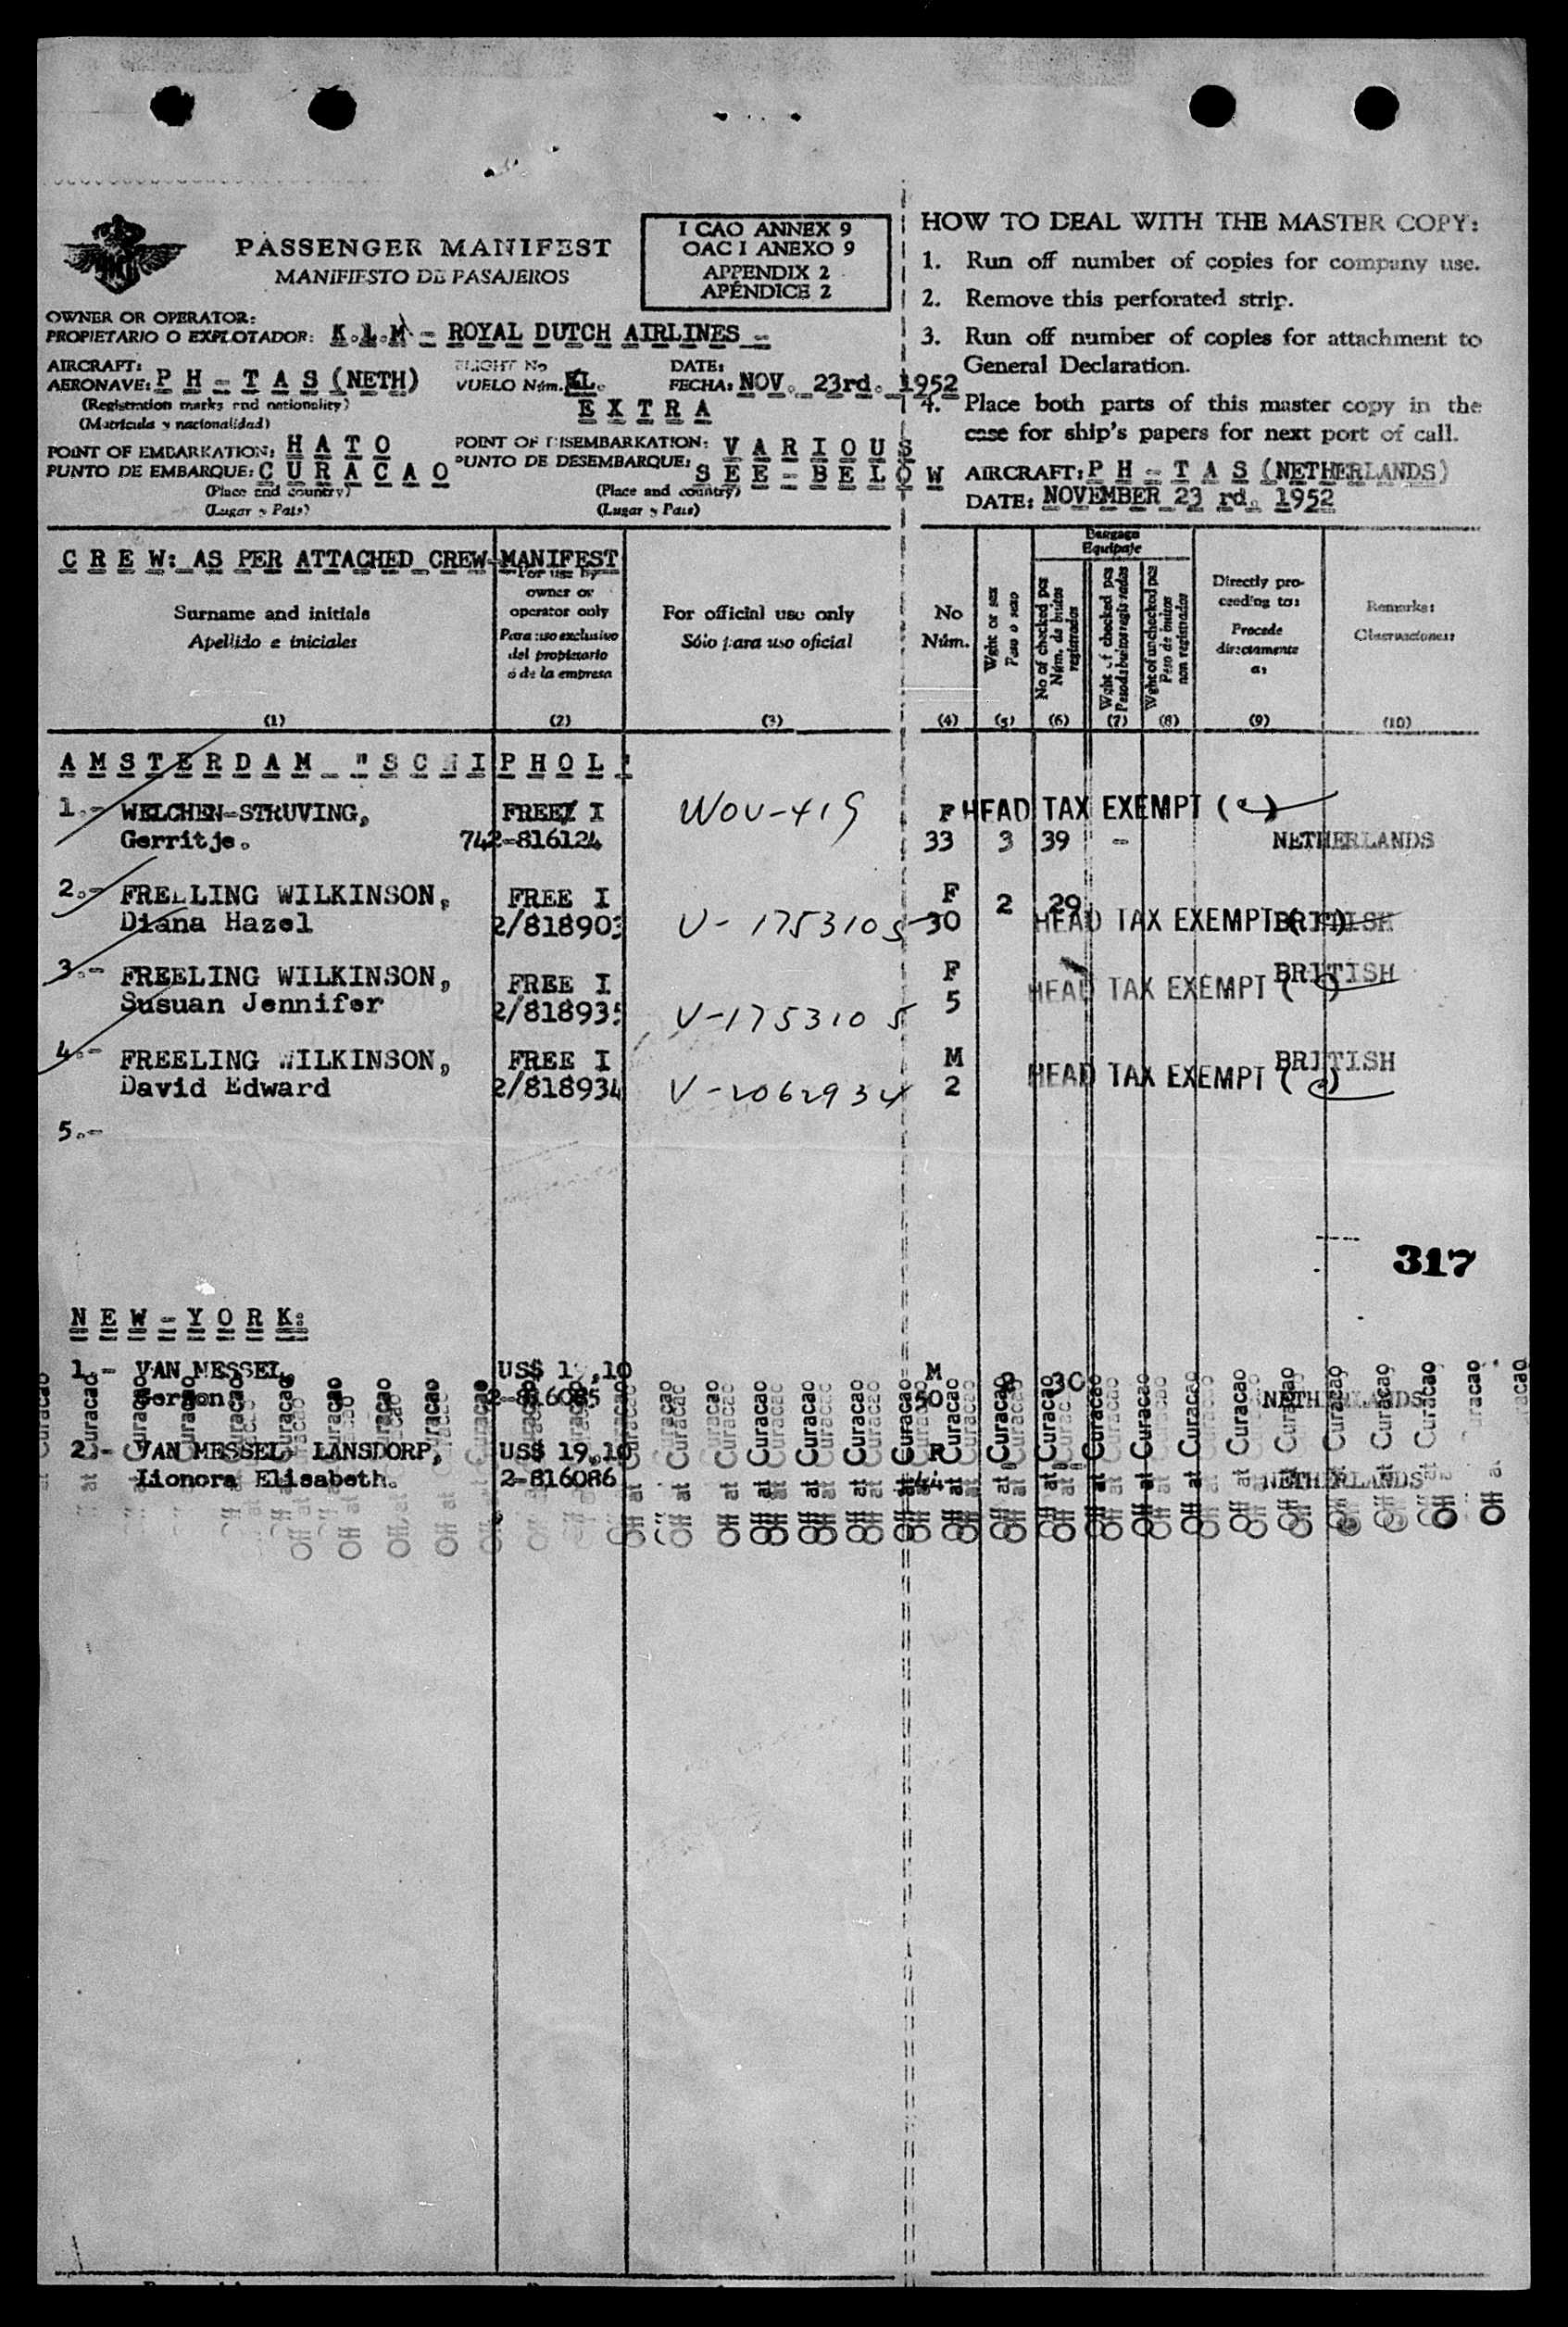 PASSENGER MANIFEST
MANIFIESTO DE PASAJEROS
I CAO ANNEX 9
OAC I ANEXO 9
APPENDIX 2
APÉNDICE 2
OWNER OR OPERATOR:
PROPIETARIO O EXPLOTADOR: K.L.M - ROYAL DUTCH AIRLINES -
AIRCRAFT:
AERONAVE: P H - T A S (NETH)
(Registration marks and nationality)
(Matrícula y nacionalidad)
FLIGHT No
VUELO Núm. KL.
E X T R A
DATE:
FECHA: NOV. 23rd. 1952
POINT OF EMBARKATION: H A T O
PUNTO DE EMBARQUE: C U R A C A O
(Place and country)
(Lugar y País)
POINT OF DISEMBARKATION: V A R I O U S
PUNTO DE DESEMBARQUE: S E E - B E L O W
(Place and country)
(Lugar y País)
HOW TO DEAL WITH THE MASTER COPY:
1. Run off number of copies for company use.
2. Remove this perforated strip.
3. Run off number of copies for attachment to
General Declaration.
4. Place both parts of this master copy in the
case for ship's papers for next port of call.
AIRCRAFT: P H - T A S (NETHERLANDS)
DATE: NOVEMBER 23 rd. 1952
C R E W: AS PER ATTACHED CREW-MANIFEST
Surname and initials
Apellido e iniciales
(1)
For use by
owner or
operator only
Para uso exclusivo
del propietario
ó de la empresa
(2)
For official use only
Sólo para uso oficial
(3)
No
Núm.
(4)
Wght or sex
Peso o sexo
(5)
Baggage
Equipaje
No of checked pcs
Núm. de bultos
registrados
(6)
Wght of checked pcs
Peso de bultos registrados
(7)
Wght of unchecked pcs
Peso de bultos
non registrados
(8)
Directly pro-
ceeding to:
Procede
directamente
a:
(9)
Remarks:
Observaciones:
(10)
A M S T E R D A M - "S C H I P H O L"
1.- WELCHEN-STRUVING, FREE I WOU-419 F HEAD TAX EXEMPT ( )
Gerritje. 742-816124 33 3 39 - NETHERLANDS
2.- FREELING WILKINSON, FREE I F 2 29
Diana Hazel 2/818903 V-1753105 30 HEAD TAX EXEMPT ( ) BRITISH
3.- FREELING WILKINSON, FREE I F BRITISH
Susuan Jennifer 2/818935 V-1753105 5 HEAD TAX EXEMPT ( )
4.- FREELING WILKINSON, FREE I M BRITISH
David Edward 2/818934 V-2062934 2 HEAD TAX EXEMPT ( )
5.-
317
N E W - Y O R K:
1.- VAN MESSEL, US$ M
Gerson 2-816085 50 30 NETHERLANDS
2.- VAN MESSEL LANSDORP, US$ 19,10 F
Lionora Elisabeth. 2-816086 44 NETHERLANDS
Off at Curacao